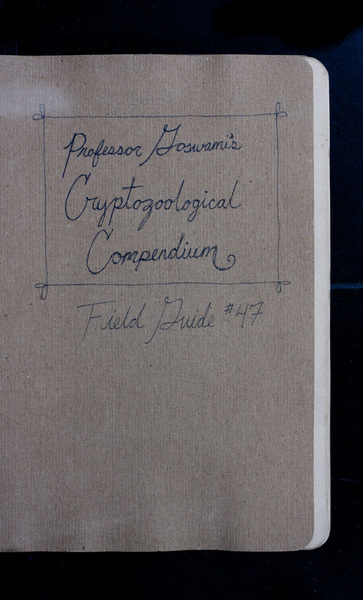 Professor Goswami's
Cryptozoological
Compendium
Field Guide #47